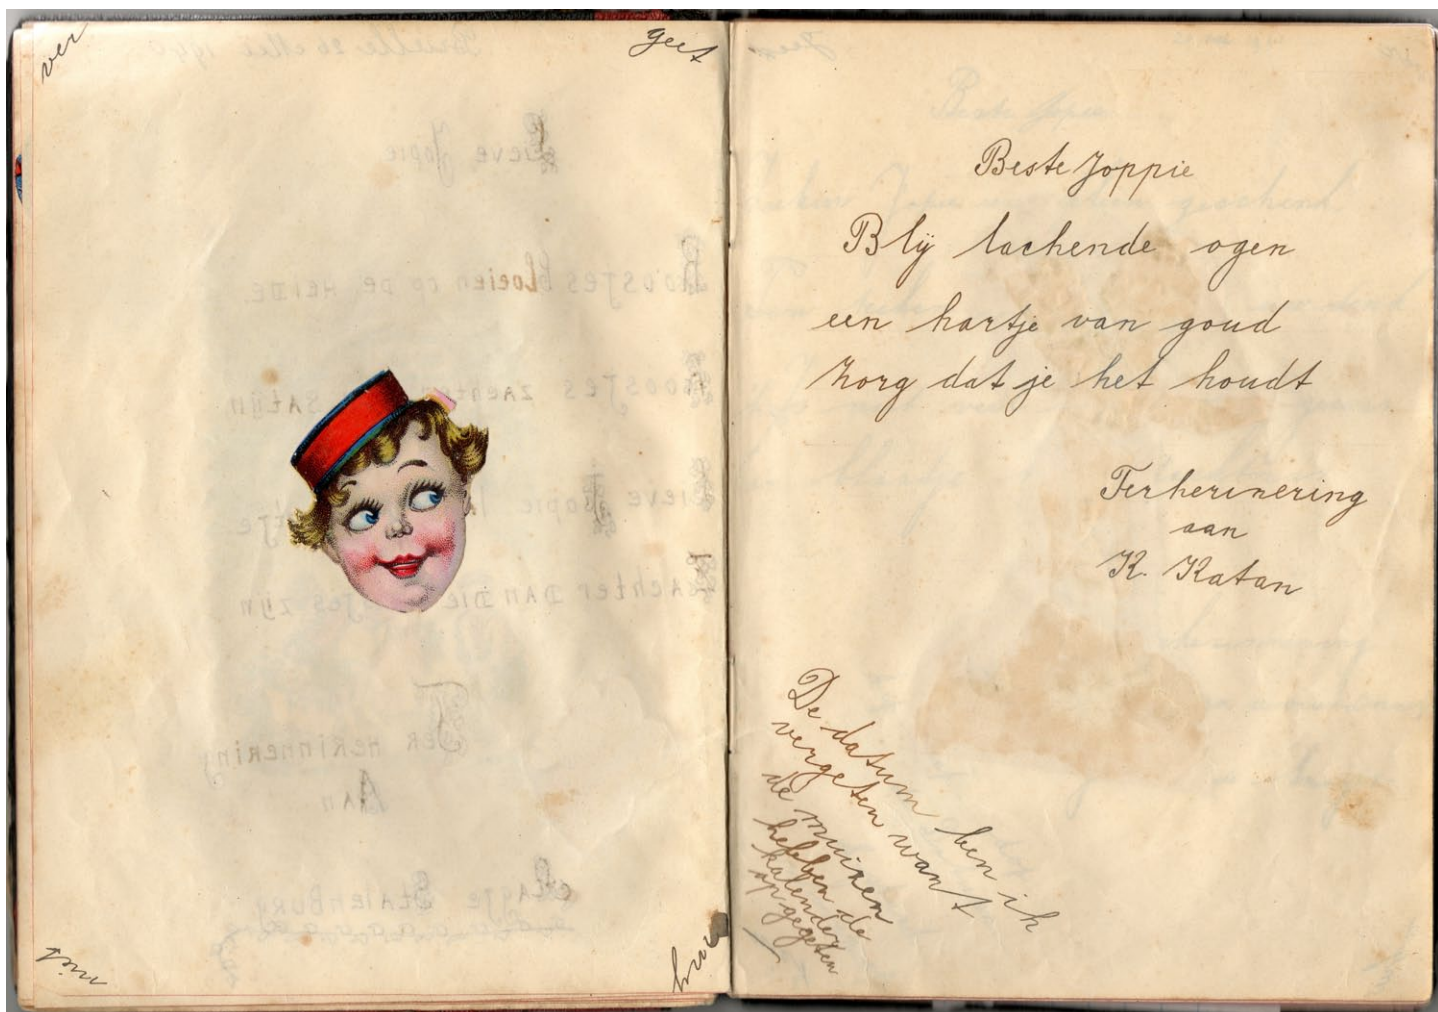 ver
geet
mij
niet
Beste Joppie
Blij lachende ogen
een hartje van goud
Zorg dat je het houdt
Terherinering
aan
K. Katan
De datum ben ik
vergeten want
de muizen
hebben de
kalender
op gegeten